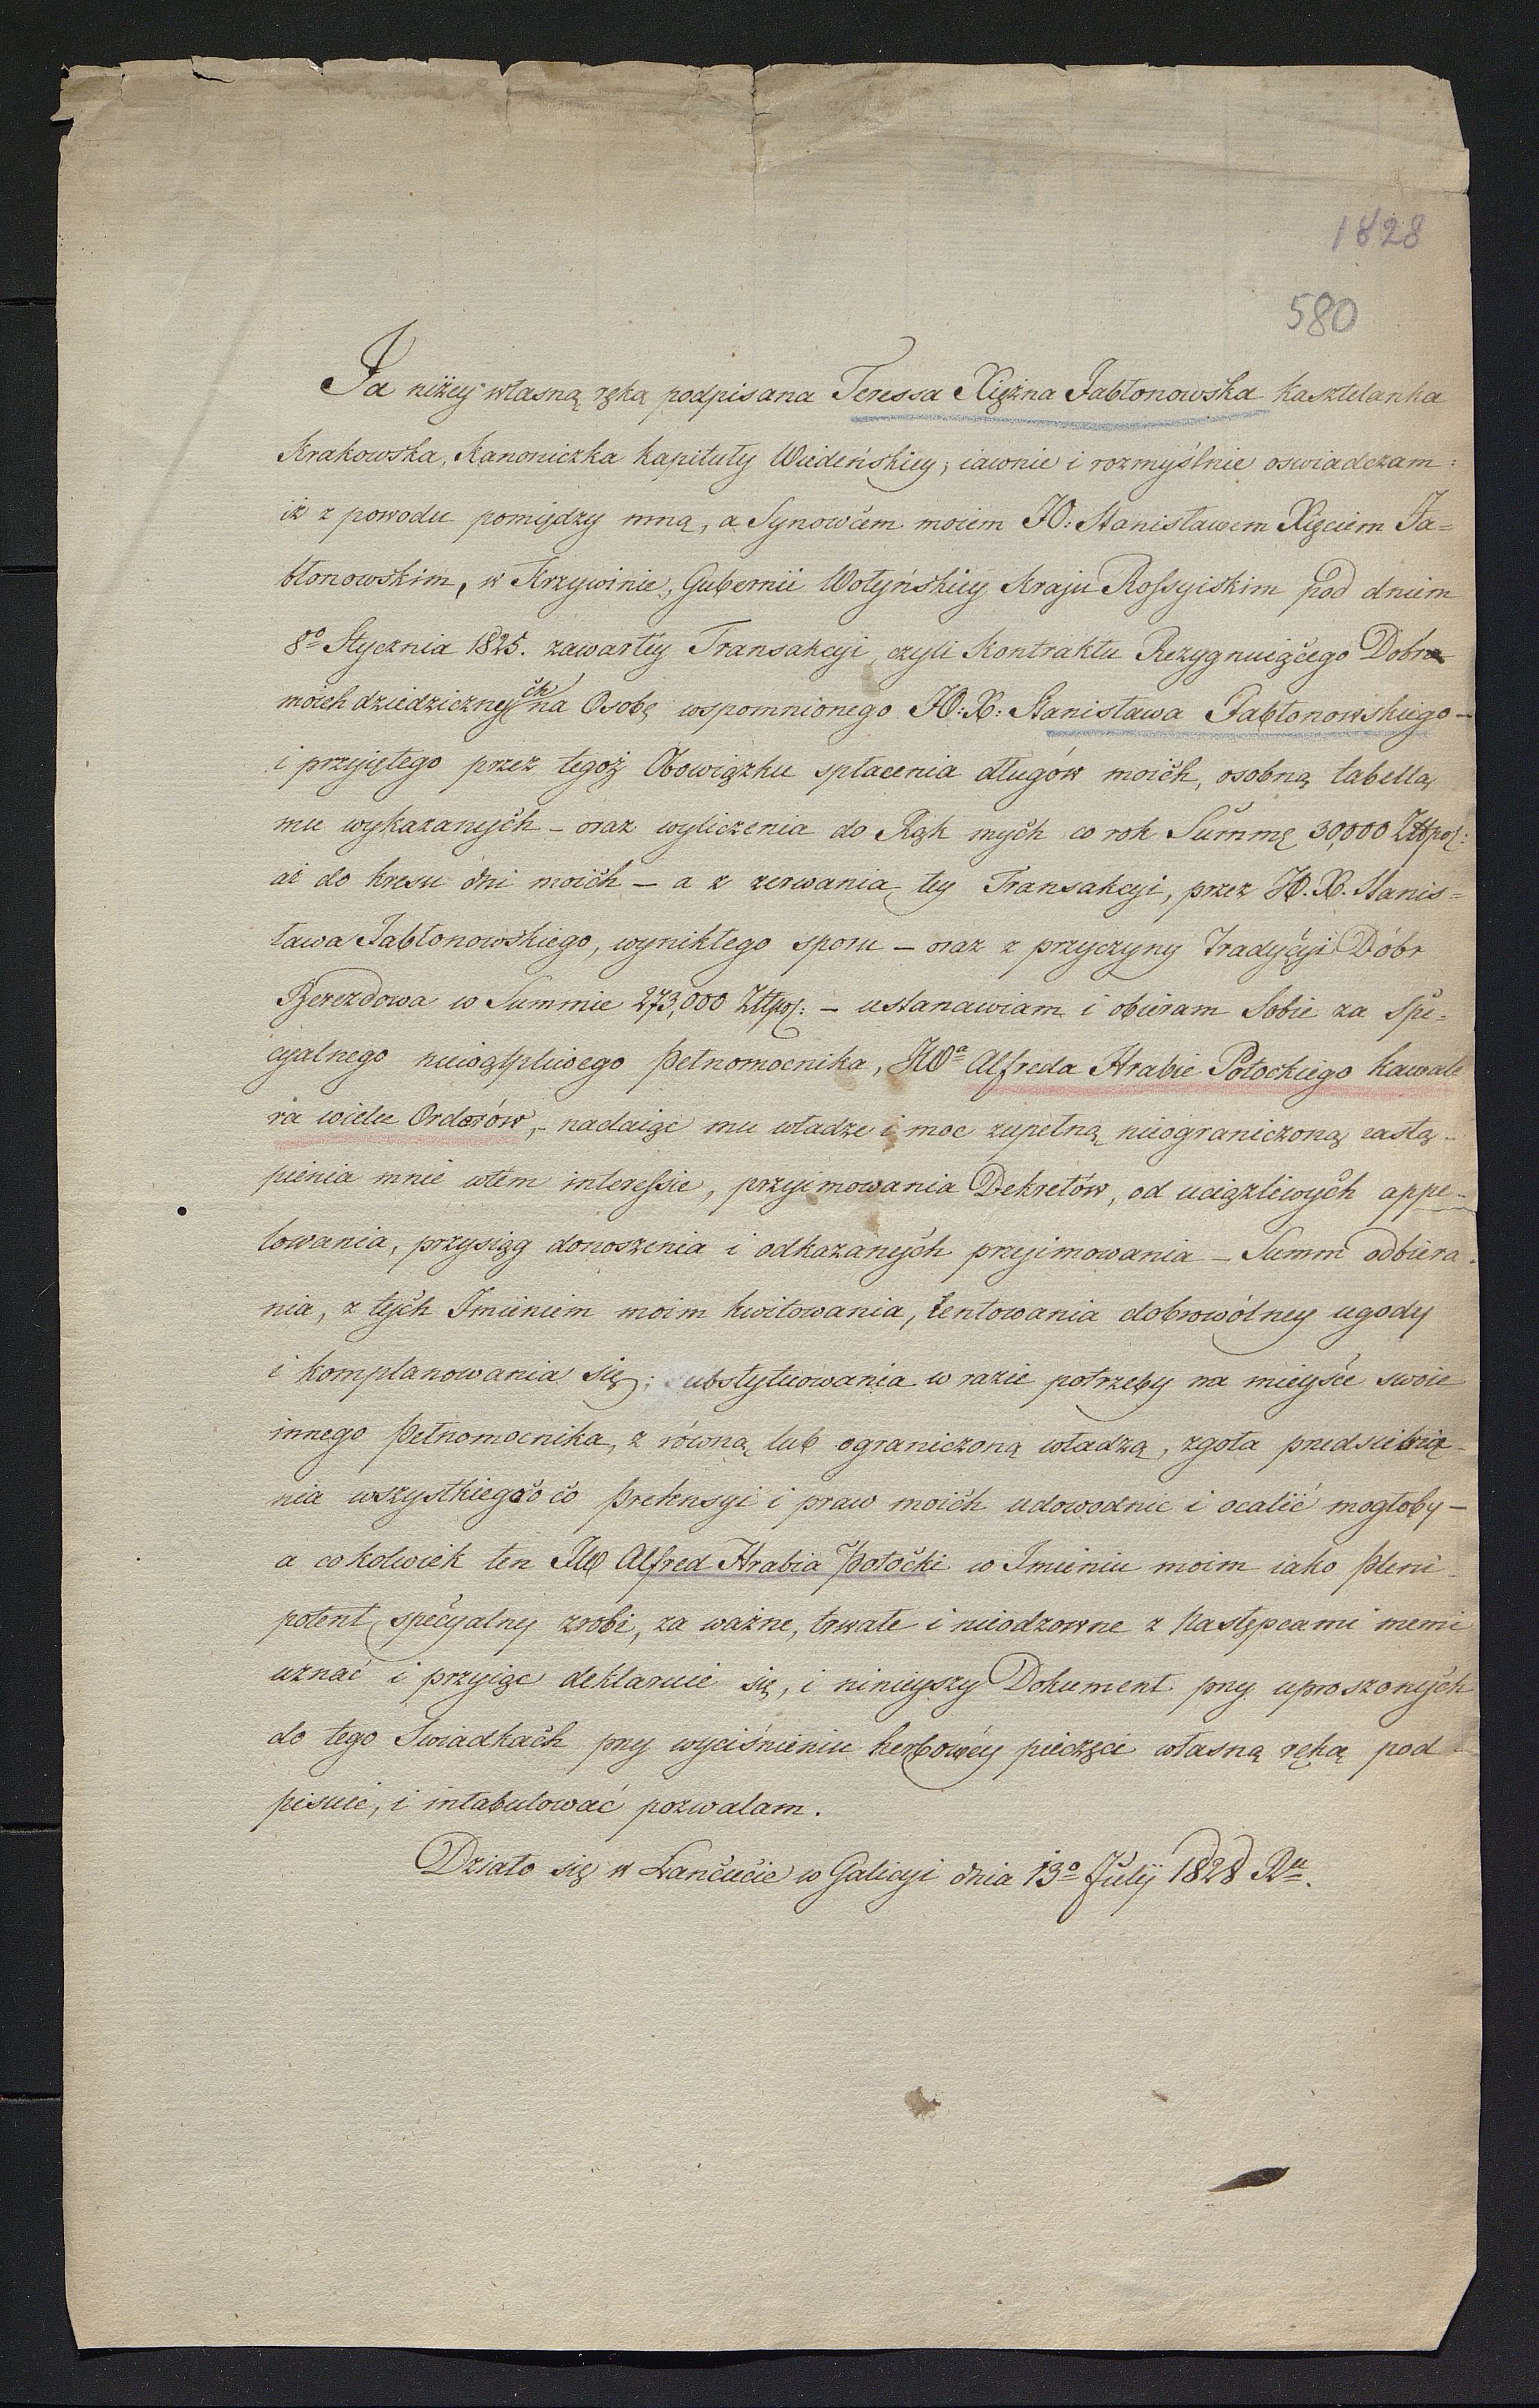 1828
580
Ja niżey własną ręką podpisana Teressa Xiężna Jabłonowska Kasztelanka
Krakowska, Kanoniczka Kapituły Wiedeńskiey, iawnie i rozmyślnie oswiadczam:
iż z powodu pomiędzy mną, a Synowcem moiem JO: Stanisławem Xięciem Ja=
błonowskim, w Krzywinie, Gubernii Wołyńskiey Kraju Rossyiskim pod dniem
8º Stycznia 1825. zawartey Transakcyi, czyli Kontraktu Rezygnuiącego Dobra
moich dziedzicznych na Osobę wspomnionego JO: X: Stanisława Jabłonowskiego –
i przyiętego przez tegoż Obowiązku spłacenia długów moich, osobną tabellą
mu wykazanych – oraz wyliczenia do Rąk mych co rok Summę 30,000 Złtpol:
aż do kresu dni moich – a z zerwania tey Transakcyi, przez JO. X. Stanis=
ława Jabłonowskiego, wynikłego sporu – oraz z przyczyny Tradycyi Dóbr
Berezdowa w Summie 273,000 Złtpol: – ustanawiam i obieram Sobie za spe-
cyalnego niewątpliwego Pełnomocnika, JWª Alfreda Hrabie Potockiego kawale
ra wielu Orderów, – nadaiąc mu władze i moc zupełną nieograniczoną zastą-
pienia mnie wtem interessie, przyimowania Dekretów, od uciążliwych appe-
lowania, przysiąg donoszenia i odkazanych przyimowania – Summ odbiera-
nia, z tych Imieniem moim kwitowania, tentowania dobrowólney ugody
i komplanowania się; substytuowania w razie potrzeby na mieysce swoie
innego Pełnomocnika, z równą lub ograniczoną władzą, zgoła predsiewzię-
nia wszystkiego co Pretensyi i praw moich udowodnic i ocalić mogłoby –
a cokolwiek ten JW Alfred Hrabia Potocki w Imieniu moim iako Pleni-
potent specyalny zrobi, za ważne, trwałe i nieodzowne z Następcami memi
uznać i przyiąc deklaruie się, i ninieyszy Dokument przy uproszonych
do tego Swiadkach przy wyciśnieniu herbowéy pieczęci własną ręką pod-
pisuie, i intabulować pozwalam.
Działo się w Łancucie w Galicyi dnia 13º Julij 1828 Rª.